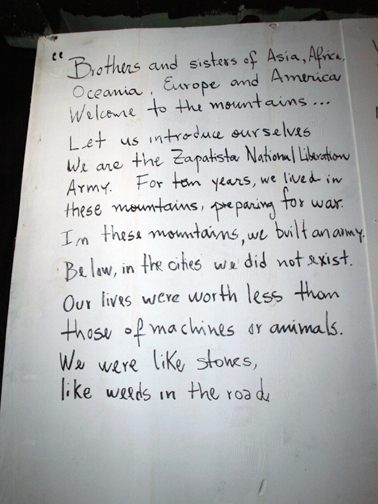 "Brothers and sisters of Asia, Africa,
Oceania, Europe and America
Welcome to the mountains...
Let us introduce ourselves
We are the Zapatista National Liberation
Army. For ten years, we lived in
these mountains, preparing for war.
In these mountains, we built an army.
Below, in the cities we did not exist.
Our lives were worth less than
those of machines or animals.
We were like stones,
like weeds in the road